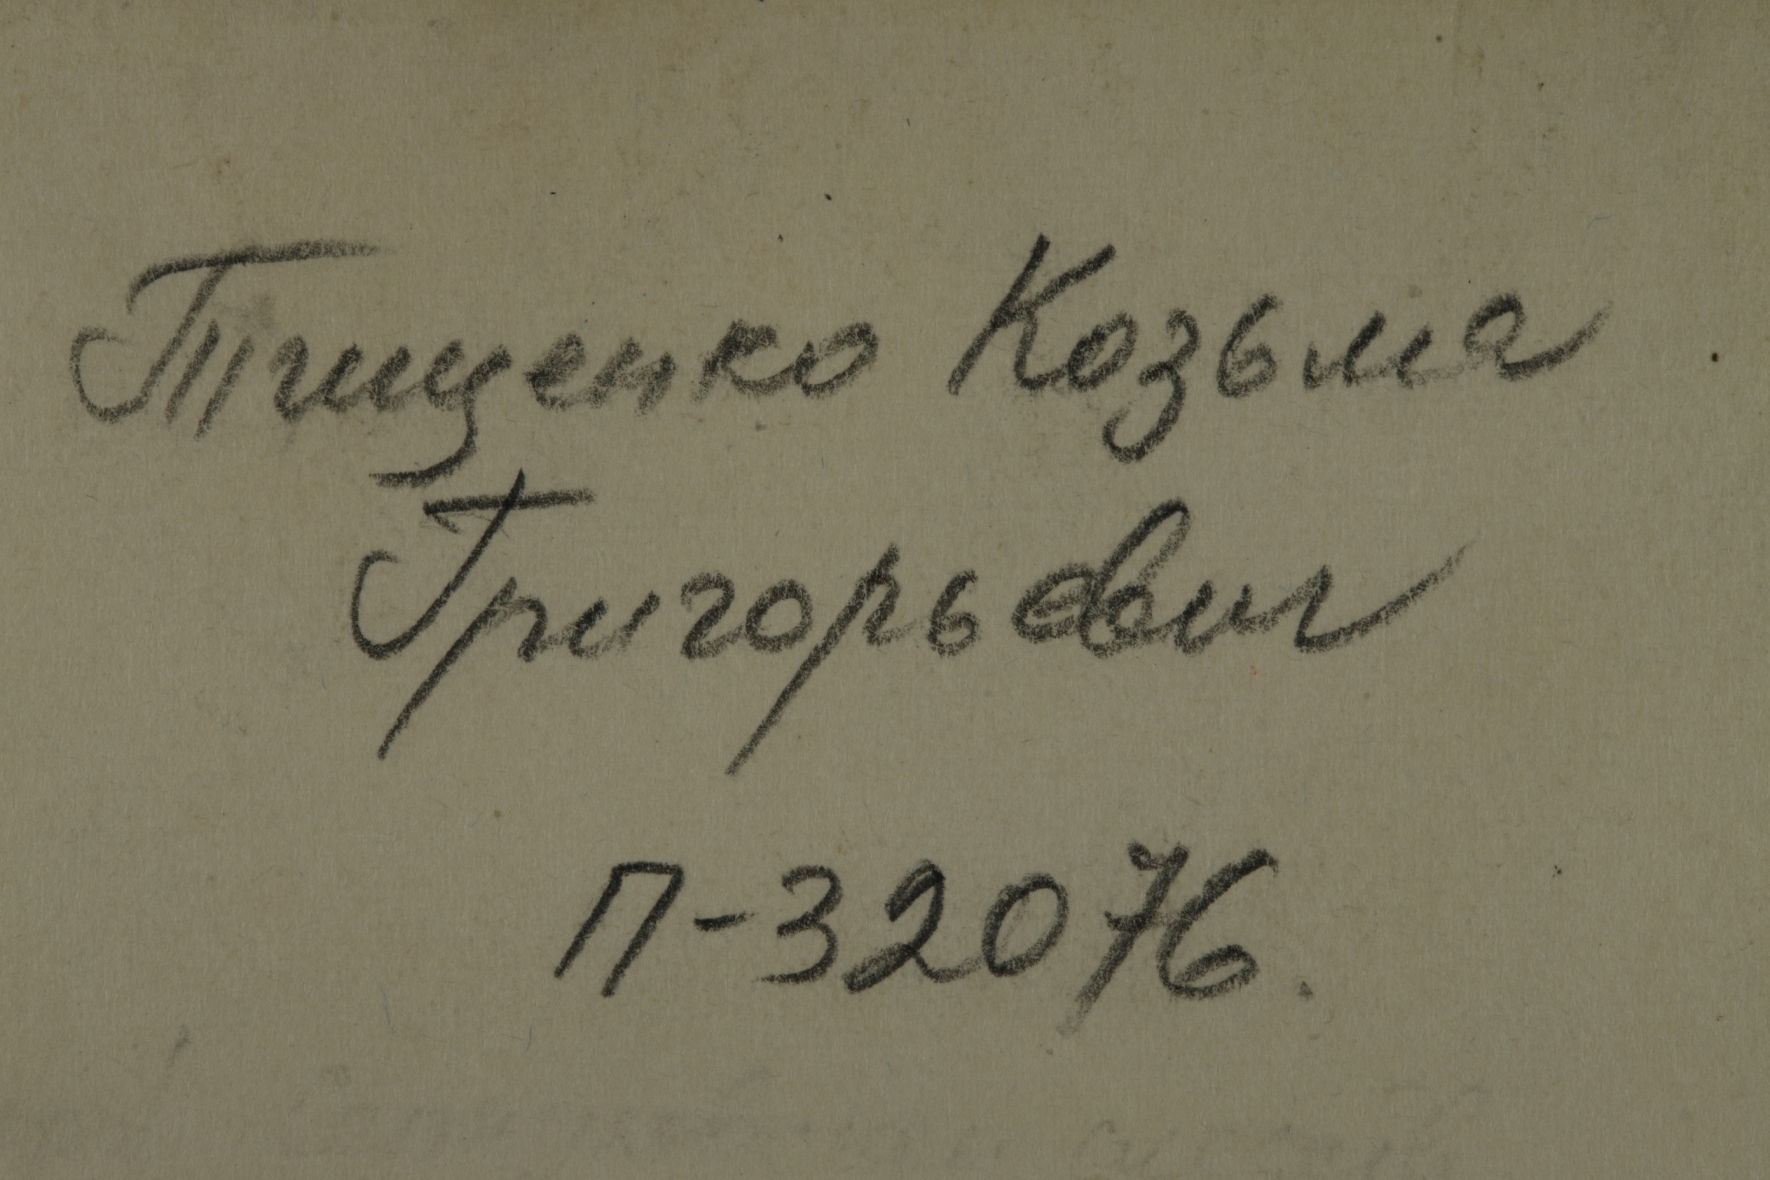 Тищенко Козьма
Григорьевич
П-32076.